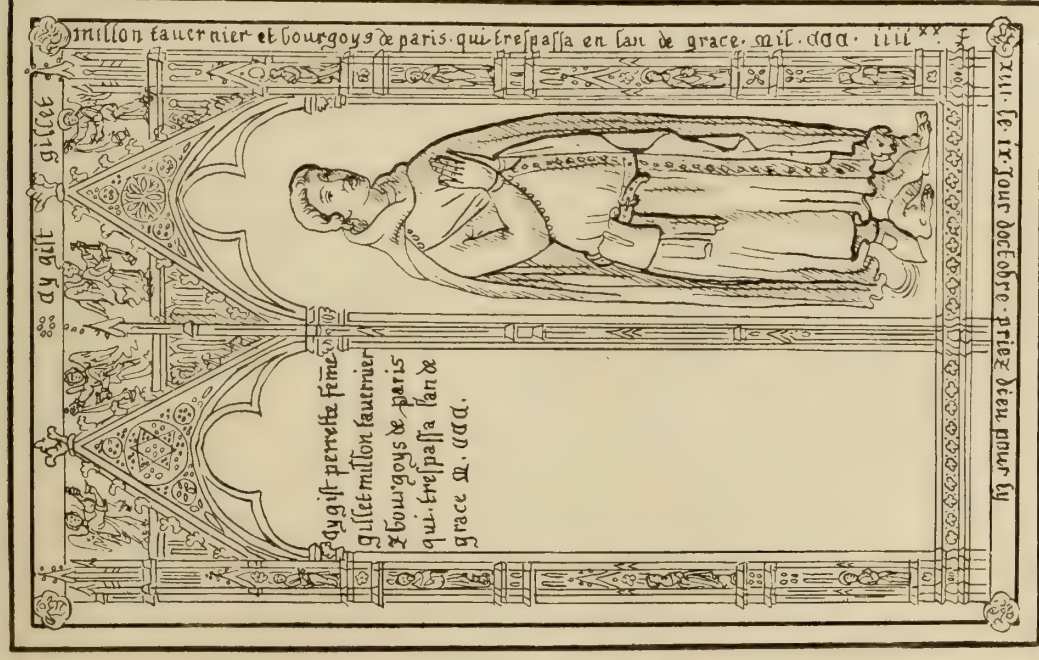 cy gist gillet
millon tauernier et bourgoys de paris. qui. trespassa en lan de grace. mil. ccc. iiii xx
xiii. le. ix. jour doctobre. priez dieu pour ly
cy gist perrette fēme
gillet millon tauernier
⁊ bourgoys de paris
qui. trespassa lan de
grace M. CCC.